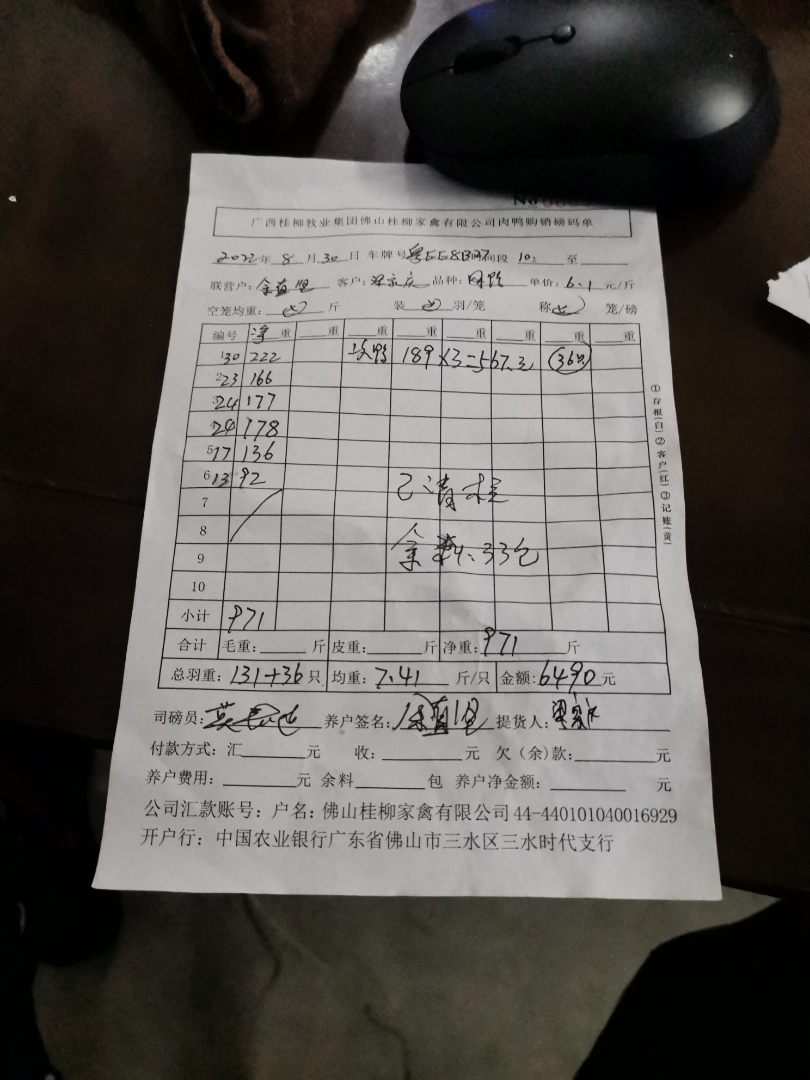 No
广西桂柳牧业集团佛山桂柳家禽有限公司肉鸭购销磅码单
2022年 8 月 30 日 车牌号 间段 10: 至
联营户: 客户: 品种: 单价: 6.1 元/斤
空笼均重: 斤 装 羽/笼 称 笼/磅
编号 净重 重 重 重 重 重 重 重
1 30 222 次鸭 189×3=567元 36只
2 23 166
3 24 177
4 24 178
5 17 136
6 13 92 已清栏
7
8
9 余料: 33包
10
小计 971
合计 毛重: 斤 皮重: 斤 净重: 971 斤
总羽重: 131+36 只 均重: 7.41 斤/只 金额: 6490 元
司磅员: 养户签名: 提货人:
付款方式: 汇 元 收: 元 欠(余)款: 元
养户费用: 元 余料 包 养户净金额: 元
公司汇款账号: 户名: 佛山桂柳家禽有限公司 44-440101040016929
开户行: 中国农业银行广东省佛山市三水区三水时代支行
①存根(白)②客户(红)③记账(黄)